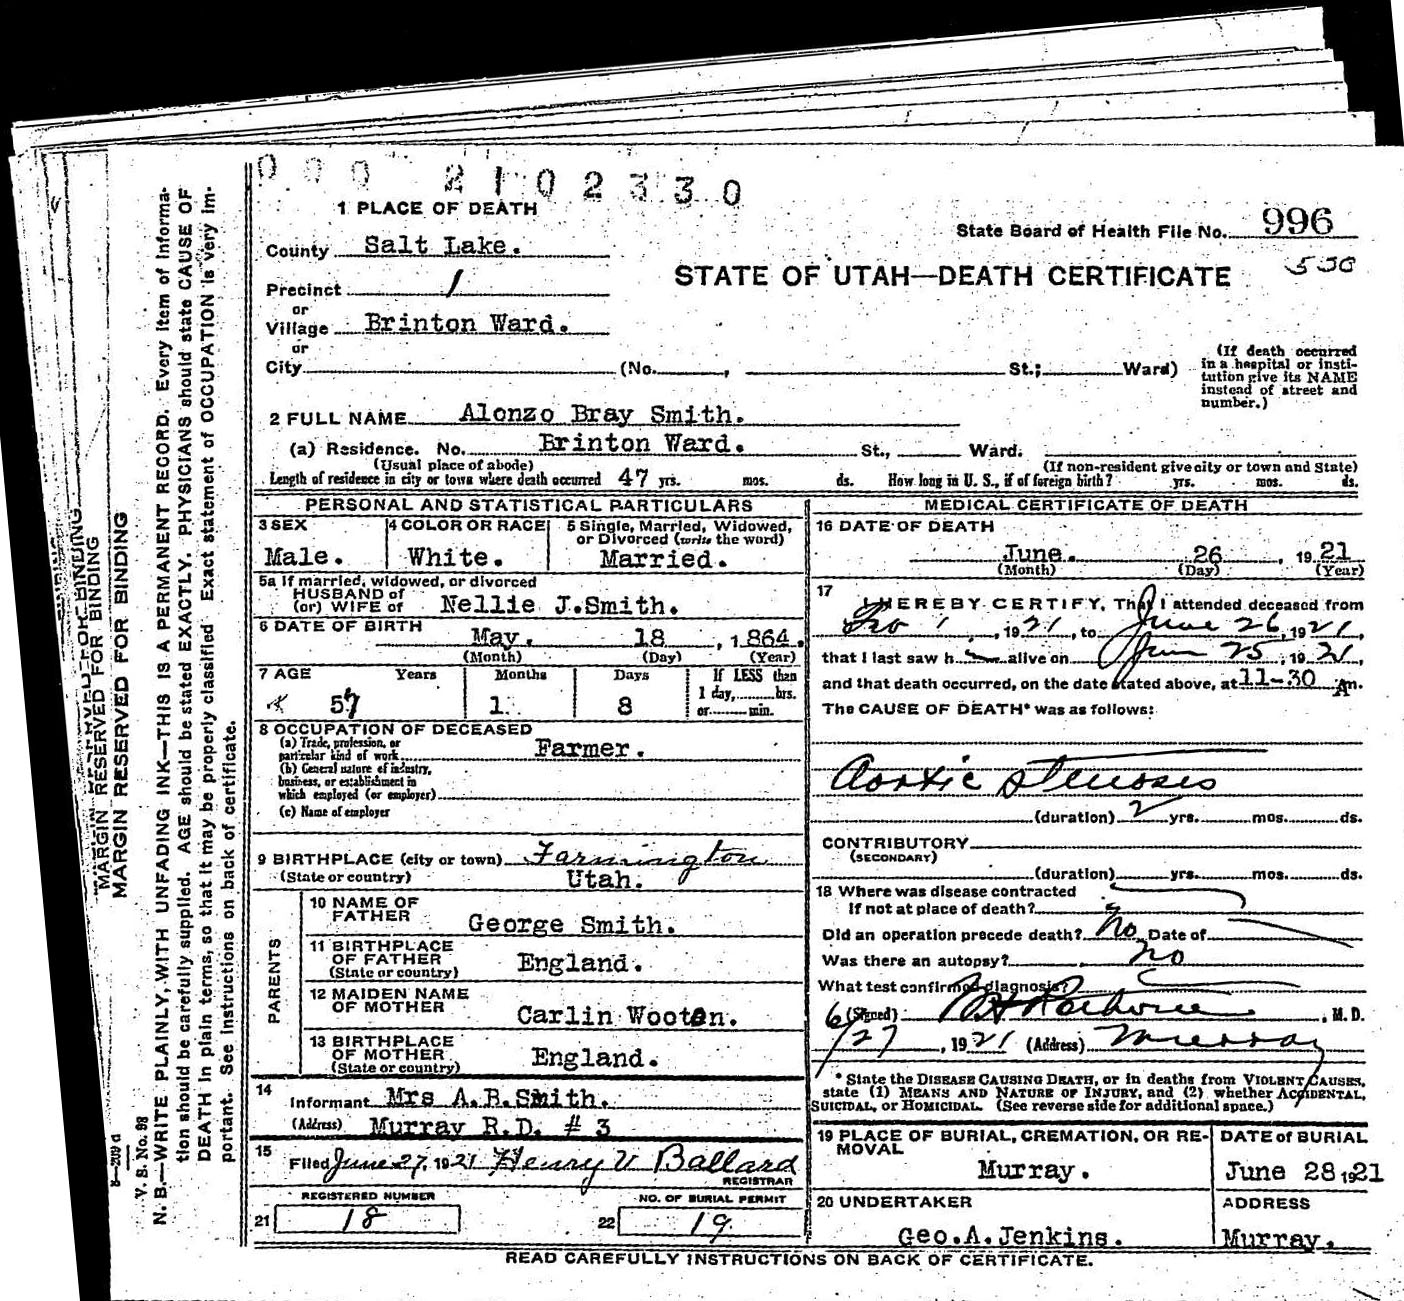 000 2102330
1 PLACE OF DEATH
State Board of Health File No. 996
County Salt Lake.
550
STATE OF UTAH—DEATH CERTIFICATE
Precinct 1
or
Village Brinton Ward.
or
City (No. , St.; Ward)
(If death occurred in a hospital or institution give its NAME instead of street and number.)
2 FULL NAME Alonzo Bray Smith.
(a) Residence. No. Brinton Ward. St., Ward.
(Usual place of abode) (If non-resident give city or town and State)
Length of residence in city or town where death occurred 47 yrs. mos. ds. How long in U. S., if of foreign birth? yrs. mos. ds.
PERSONAL AND STATISTICAL PARTICULARS
3 SEX
Male.
4 COLOR OR RACE
White.
5 Single, Married, Widowed, or Divorced (write the word)
Married.
5a If married, widowed, or divorced
HUSBAND of
(or) WIFE of Nellie J.Smith.
6 DATE OF BIRTH
May. 18 , 1864.
(Month) (Day) (Year)
7 AGE Years Months Days If LESS than
57 1 8 1 day, hrs.
or min.
8 OCCUPATION OF DECEASED
(a) Trade, profession, or
particular kind of work Farmer.
(b) General nature of industry,
business, or establishment in
which employed (or employer)
(c) Name of employer
9 BIRTHPLACE (city or town) Farmington
(State or country) Utah.
PARENTS
10 NAME OF
FATHER George Smith.
11 BIRTHPLACE
OF FATHER
(State or country) England.
12 MAIDEN NAME
OF MOTHER Carlin Wooten.
13 BIRTHPLACE
OF MOTHER
(State or country) England.
14
Informant Mrs A.B.Smith.
(Address) Murray R.D. # 3
15
Filed June 27, 1921 Henry V Ballard
REGISTRAR
REGISTERED NUMBER NO. OF BURIAL PERMIT
21 18 22 19
MEDICAL CERTIFICATE OF DEATH
16 DATE OF DEATH
June. 26 , 1921
(Month) (Day) (Year)
17
I HEREBY CERTIFY, That I attended deceased from
1 , 1921, to June 26, 1921,
that I last saw h alive on June 25, 1921,
and that death occurred, on the date stated above, at 11-30 Am.
The CAUSE OF DEATH* was as follows:
Aortic stenosis
(duration) 2 yrs. mos. ds.
CONTRIBUTORY
(SECONDARY)
(duration) yrs. mos. ds.
18 Where was disease contracted
If not at place of death?
Did an operation precede death? No Date of
Was there an autopsy? no
What test confirmed diagnosis?
(Signed) , M. D.
6/27, 1921 (Address) Murray
* State the DISEASE CAUSING DEATH, or in deaths from VIOLENT CAUSES,
state (1) MEANS AND NATURE OF INJURY, and (2) whether ACCIDENTAL,
SUICIDAL, or HOMICIDAL. (See reverse side for additional space.)
19 PLACE OF BURIAL, CREMATION, OR REMOVAL
Murray.
DATE of BURIAL
June 28 1921
20 UNDERTAKER
Geo.A.Jenkins.
ADDRESS
Murray.
READ CAREFULLY INSTRUCTIONS ON BACK OF CERTIFICATE.
MARGIN RESERVED FOR BINDING
MARGIN RESERVED FOR BINDING
8—209 d
V. S. No. 98
N. B.—WRITE PLAINLY, WITH UNFADING INK—THIS IS A PERMANENT RECORD. Every item of informa-
tion should be carefully supplied. AGE should be stated EXACTLY. PHYSICIANS should state CAUSE OF
DEATH in plain terms, so that it may be properly classified. Exact statement of OCCUPATION is very im-
portant. See instructions on back of certificate.